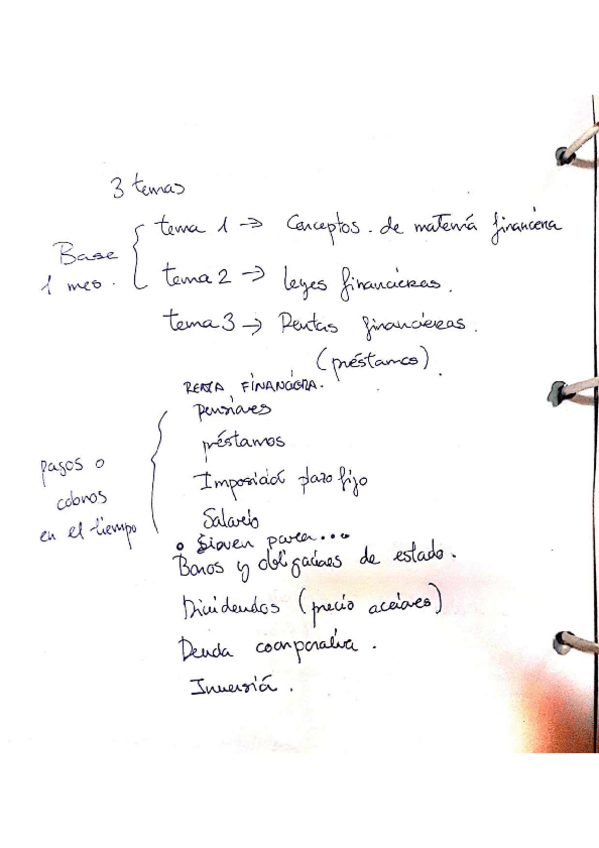 3 temas
Base
1 mes.
tema 1 -> Conceptos. de matemá financiera
tema 2 -> leyes financieras.
tema 3 -> Rentas financieras.
(préstamos).
RENTA FINANCIERA.
pagos o
cobros
en el tiempo
Pensiones
préstamos
Imposición plazo fijo
Salario
o Sirven para...
Bonos y obligaciones de estado.
Dividendos (precio acciones)
Deuda coorporativa.
Inversión.